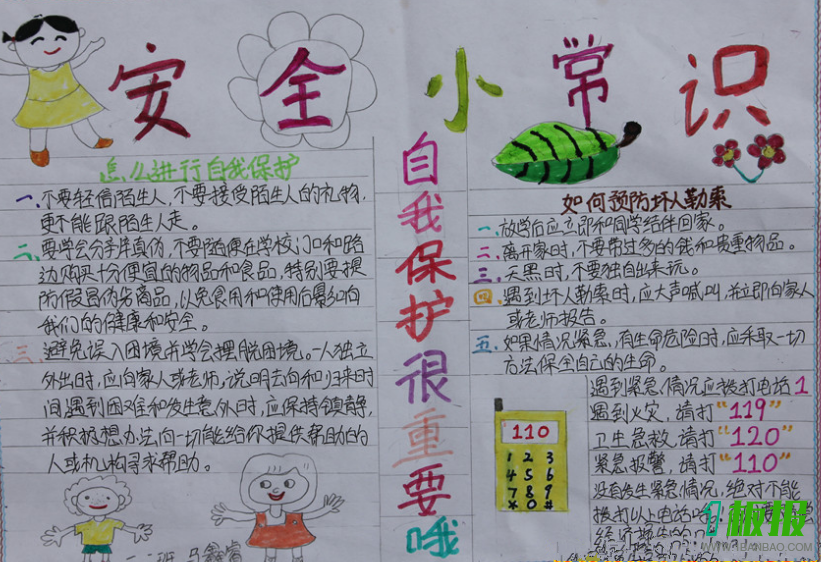 安全小常识
怎么进行自我保护
一、不要轻信陌生人,不要接受陌生人的礼物,
更不能跟陌生人走。
二、要学会分辨真伪,不要随便在学校门口和路
边购买十分便宜的物品和食品,特别要提
防假冒伪劣商品,以免食用和使用后影响
我们的健康和安全。
三、避免误入困境并学会摆脱困境。一人独立
外出时,应向家人或老师,说明去向和归来时
间,遇到困难和发生意外时,应保持镇静,
并积极想办法,向一切能给你提供帮助的
人或机构寻求帮助。
自我保护很重要哦
如何预防坏人勒索
一、放学后应立即和同学结伴回家。
二、离开家时,不要带过多的钱和贵重物品。
三、天黑时,不要独自出来玩。
四、遇到坏人勒索时,应大声喊叫,并立即向家人
或老师报告。
五、如果情况紧急,有生命危险时,应采取一切
方法保全自己的生命。
110
1 2 3
4 5 6
7 8 9
* 0 #
遇到紧急情况应拨打电话
遇到火灾,请打“119”
卫生急救,请打“120”
紧急报警,请打“110”
没有发生紧急情况,绝对不能
拨打以上电话
板报
WWW.1BANBAO.COM